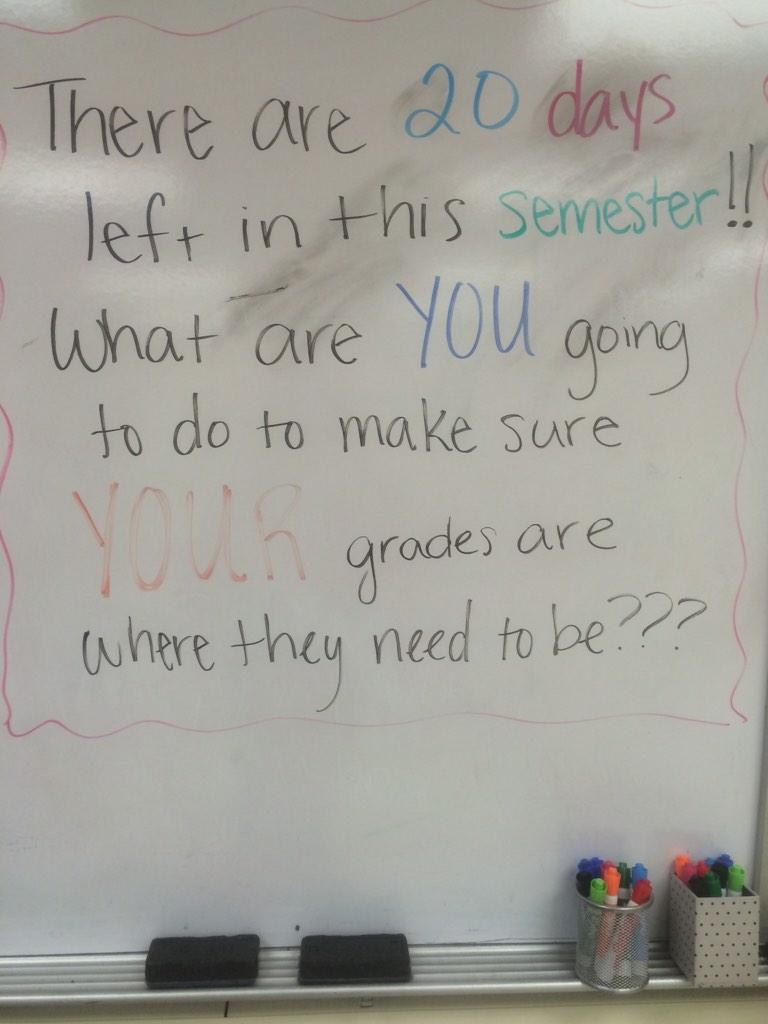 There are 20 days
left in this semester!!
What are YOU going
to do to make sure
YOUR grades are
where they need to be???